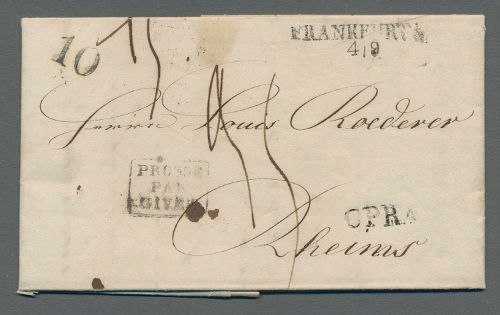 10
FRANKFURT
4|9
Herrn Louis Roederer
PRUSSE
PAR
GIVET
CPR4
Rheims